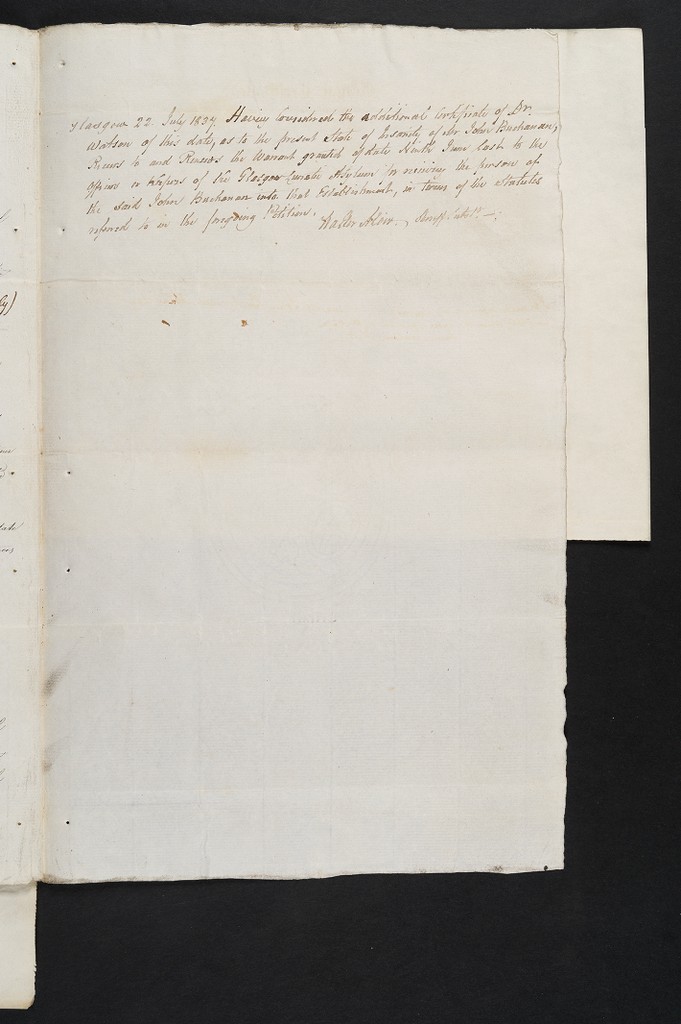 Glasgow 22. July 1837. Having Considered the additional Certificate of Dr.
Watson of this date, as to the present State of Insanity of Mr John Buchanan,
Recurs to and Renews the Warrant granted of date Ninth June last to the
officers or keepers of the Glasgow Lunatic Asylum for receiving the person of
the said John Buchanan into that Establishment, in terms of the Statutes
referred to in the foregoing Petition.
Walter Moir.
ly)